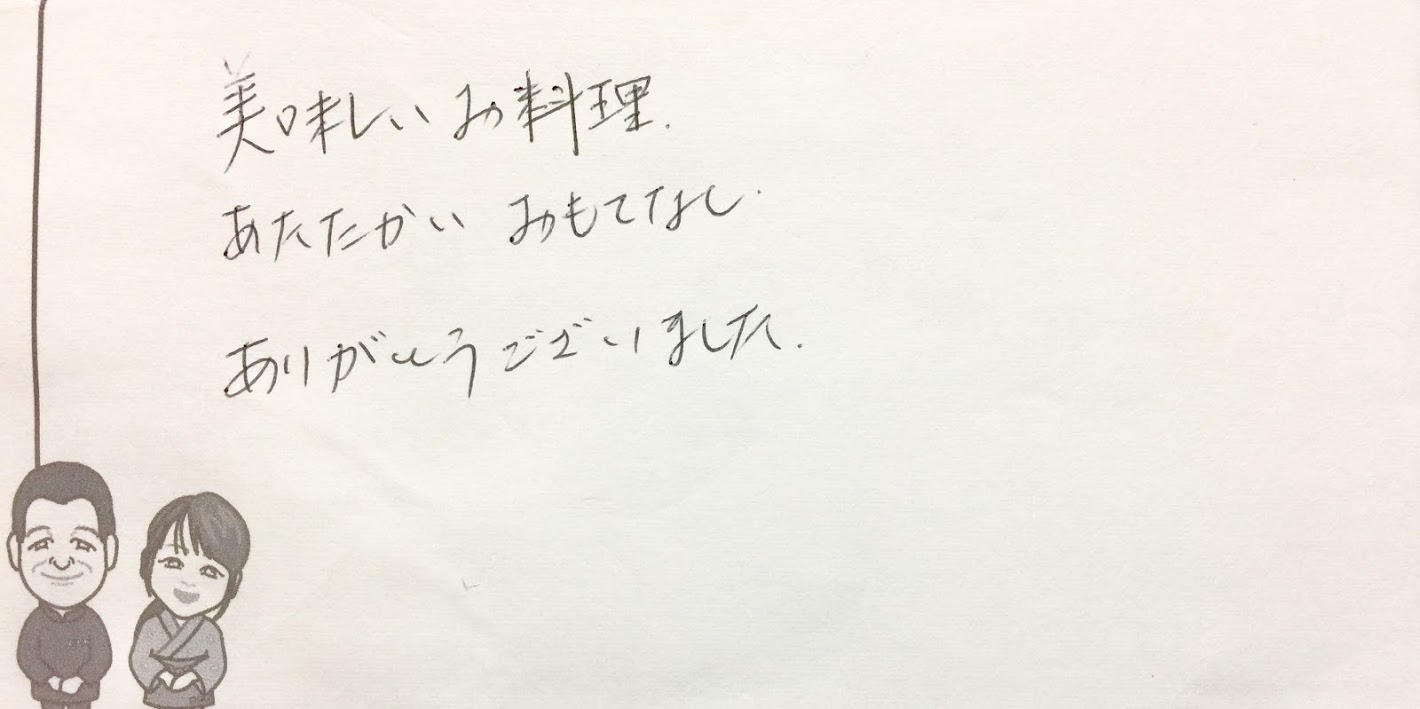 美味しいお料理.
あたたかい おもてなし.
ありがとうございました.